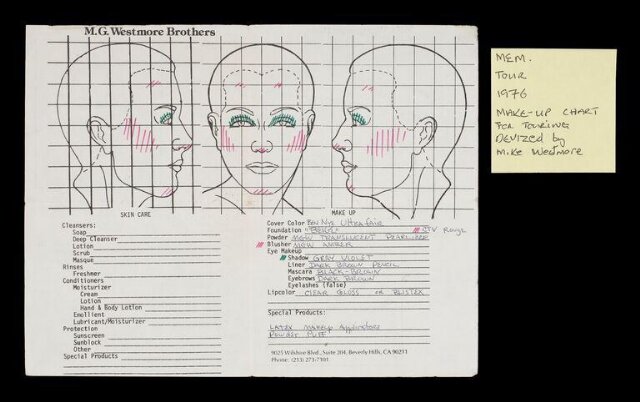 M.G. Westmore Brothers
SKIN CARE
MAKE UP
Cleansers:
Soap
Deep Cleanser
Lotion
Scrub
Masque
Rinses
Freshner
Conditioners
Moisturizer
Cream
Lotion
Hand & Body Lotion
Emollient
Lubricant/Moisturizer
Protection
Sunscreen
Sunblock
Other
Special Products
Cover Color Ben Nye Ultra-fair
Foundation "Beige"
CTV Rouge
Powder MGW TRANSLUCENT PEARLIZED
Blusher MGW AMBER
Eye Makeup
Shadow GRAY VIOLET
Liner DARK BROWN PENCIL
Mascara BLACK-BROWN
Eyebrows DARK BROWN
Eyelashes (false)
Lipcolor CLEAR GLOSS OR BLISTEX
Special Products:
LATEX MAKEUP Applicators
POWDER PUFF
9025 Wilshire Blvd., Suite 204, Beverly Hills, CA 90211
Phone: (213) 271-7101
MEM.
TOUR
1976
MAKE-UP CHART
FOR TOURING
DEVIZED by
Mike Westmore